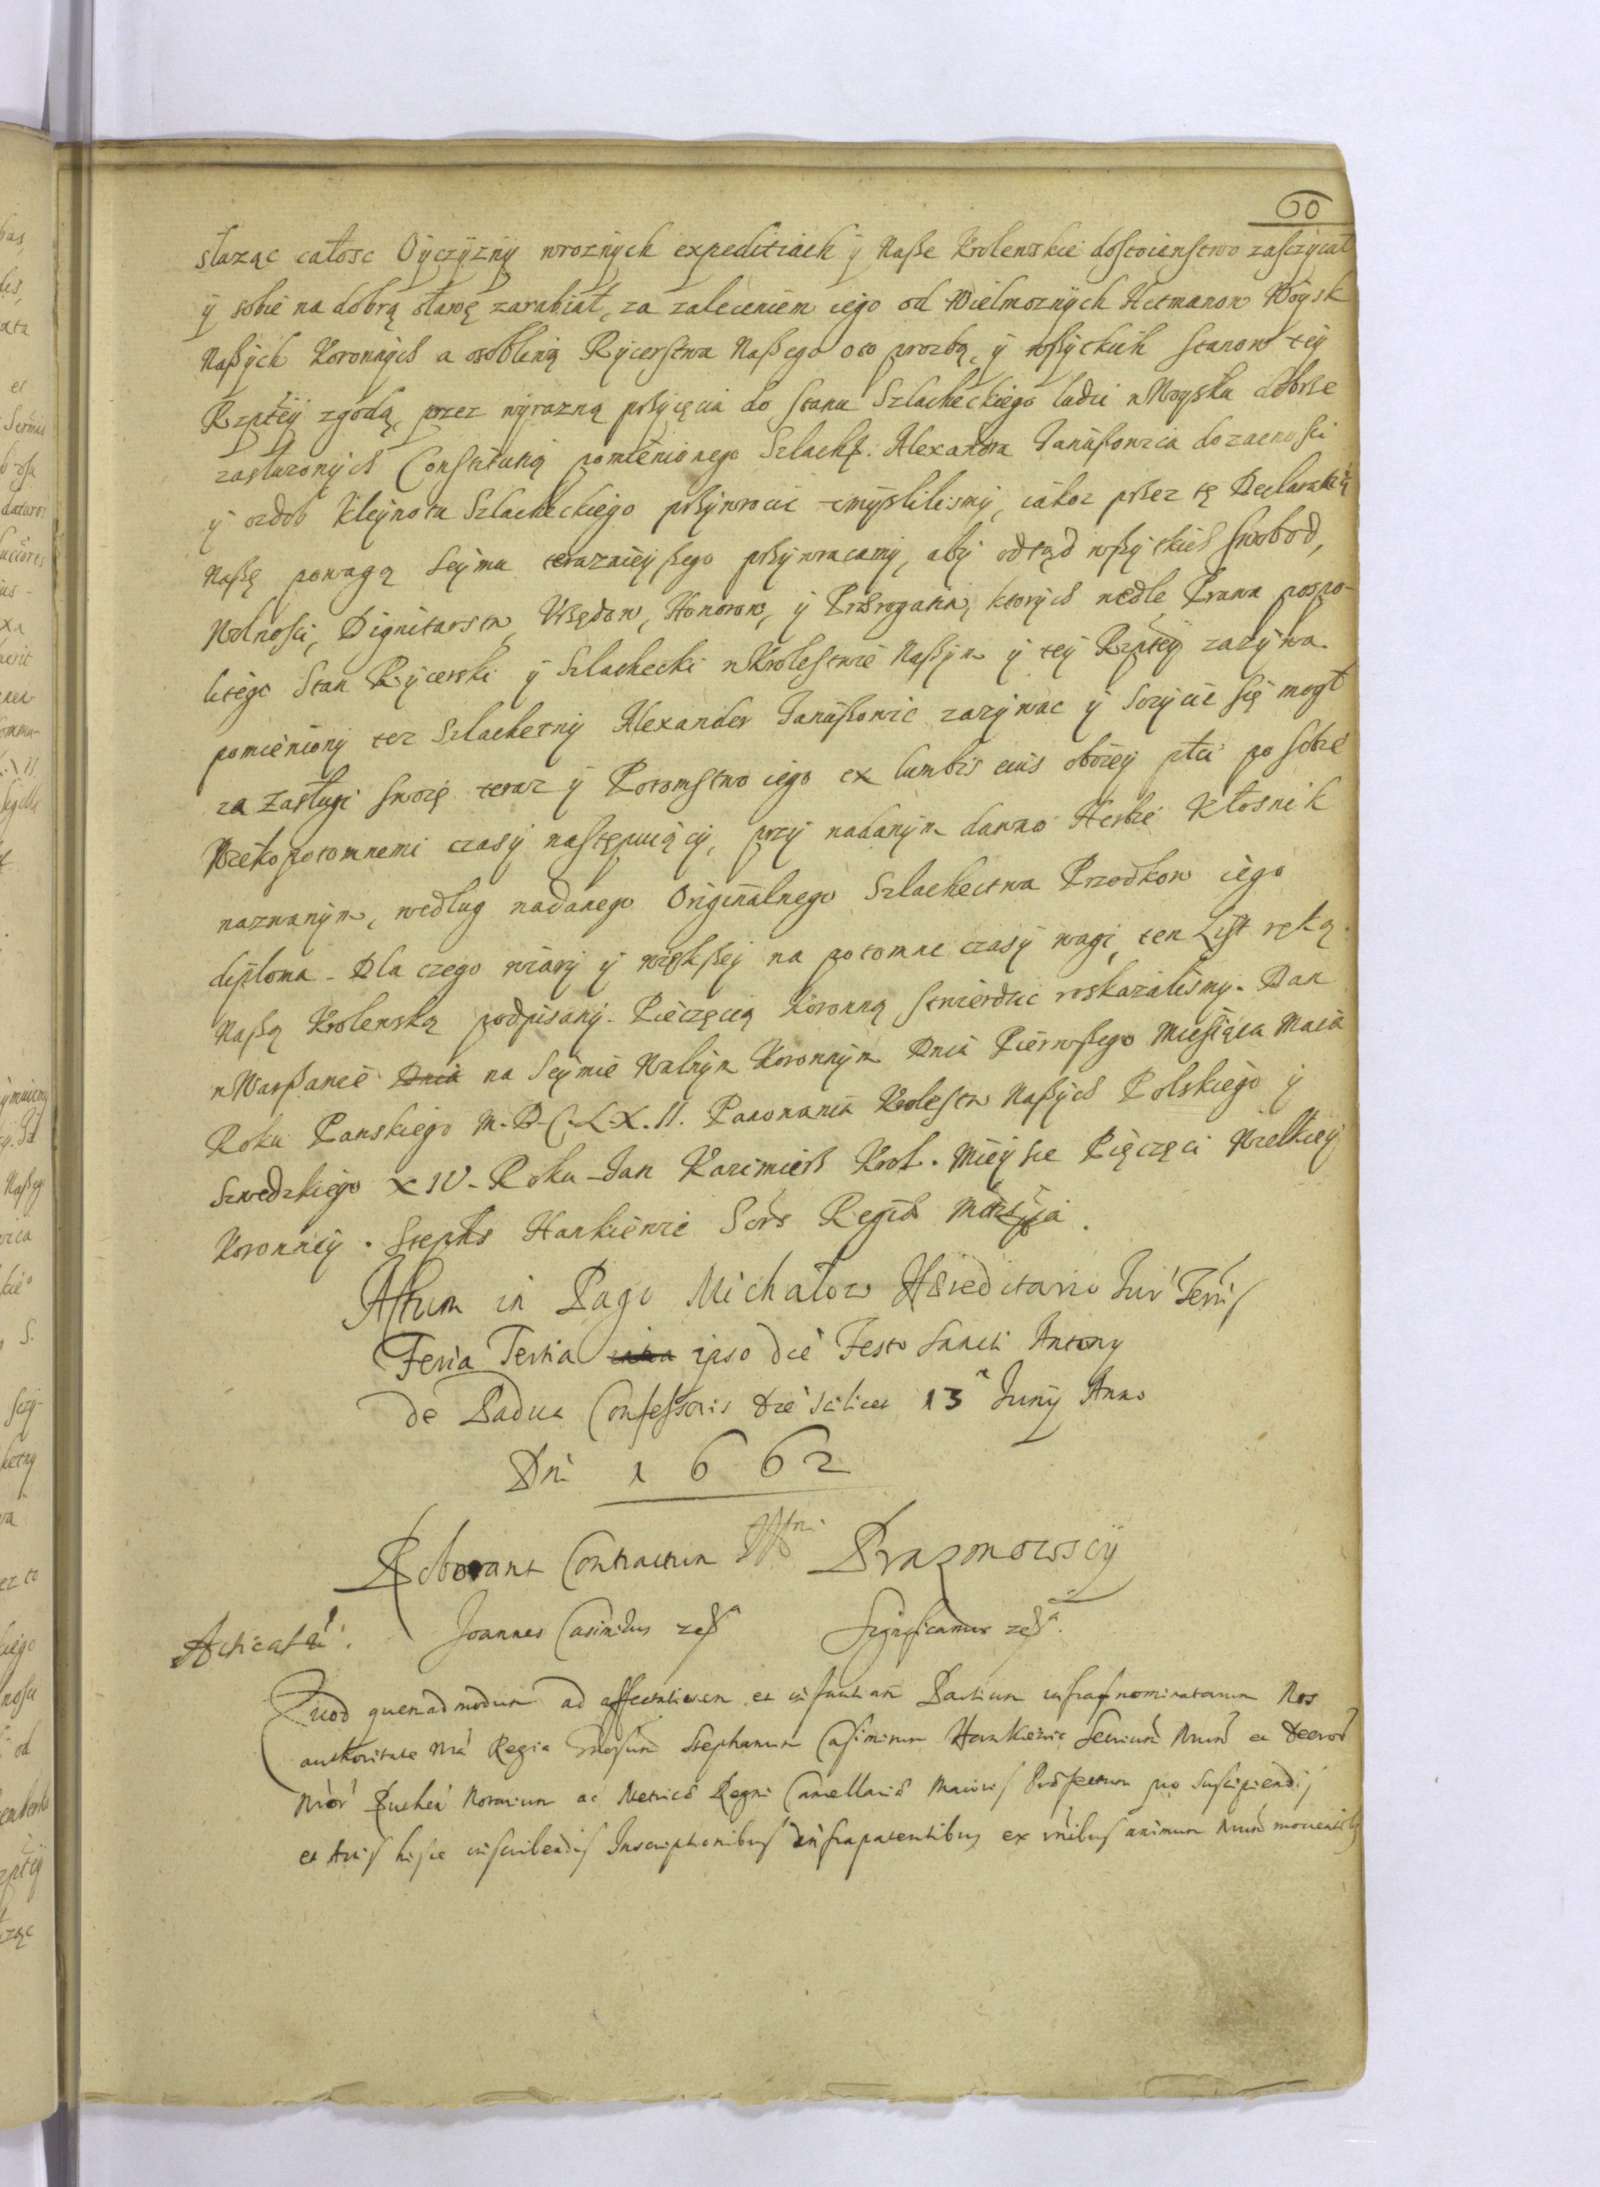 60
slaząc całosc Oyczyzny wroznych expeditiach y Naße Krolewskie dostoienstwo zasczycał
y sobie na dobrą sławę zarabiał, za zaleceniem iego od Wielmoznych Hetmanow Woysk
Naßych Koronnych a osobliwą Rycerstwa Naßego oto prozbą, y wßyckich stanow tey
Rzptey zgodą, przez wyrazną przyięcia do stanu Szlacheckiego ludzi w Woysku dobrze
zasłuzonych Constitutią pomienionego Szlach: Alexandra Janußowica do zacnosci
y ozdob Kleynotu Szlacheckiego przywrocic umyslilismy, iakoz przez tę Declaratią
Naßę powagą Seymu teraznieyßego przywracamy, aby odtąd wßyckich swobod,
Wolnosci, Dignitarstw, Urzędow, Honorow, y Prerogatiw, ktorych wedle Prawa pospo-
litego Stan Rycerski y Szlachecki w Krolestwie Naßym y tey Rzptey zazywa
pomieniony tez Szlachetny Alexander Janußowic zazywac y szczycic się mogł
za Zasługi swoię teraz y Potomstwo iego ex lumbis eius oboiey płci po sobie
Wiekopotomnemi czasy następuiący, przy nadanym dawno Herbie Kłosnik
nazwanym, według nadanego Originalnego Szlachectwa Przodkow iego
diploma. Dla czego wiary y większey na potomne czasy wagi, ten List ręką
Naßą Krolewską podpisany. Pieczęcią Koronną stwierdzic roskazalismy. Dan
w Warßawie Dnia na Seymie Walnym Koronnym Dnia Pierwßego Miesiąca Maia
Roku Panskiego M.D.C.L.X.II. Panowania Krolestw Naßych Polskiego y
Szwedzkiego XIV. Roku Jan Kazimierz Krol. Mieysce Pięczęci Wielkiey
Koronney. Stephs Hankiewic Scrs Regia Mtis
Actum in Pago Michałow Hæreditario Jur Terris
Feria Tertia ipso die Festo Sancti Antony
de Padua Confessoris die scilicet 13 Juny Anno
Dni 1662
Roborant Contractum Prazmowscy
Acticat Joannes Casimirus Significamus
Quod quemadmodum ad affectationem et instantiam Partium infranominatarum Nos
authoritate Nra Regia Stephanum Casimirum Hankiewic et
Notarium ac Metrices Regni Cancellariæ Maioris Præfectum pro Suscipiendis
et Actis hisce inscribendis Inscriptionibus infrapatentibus ex animum